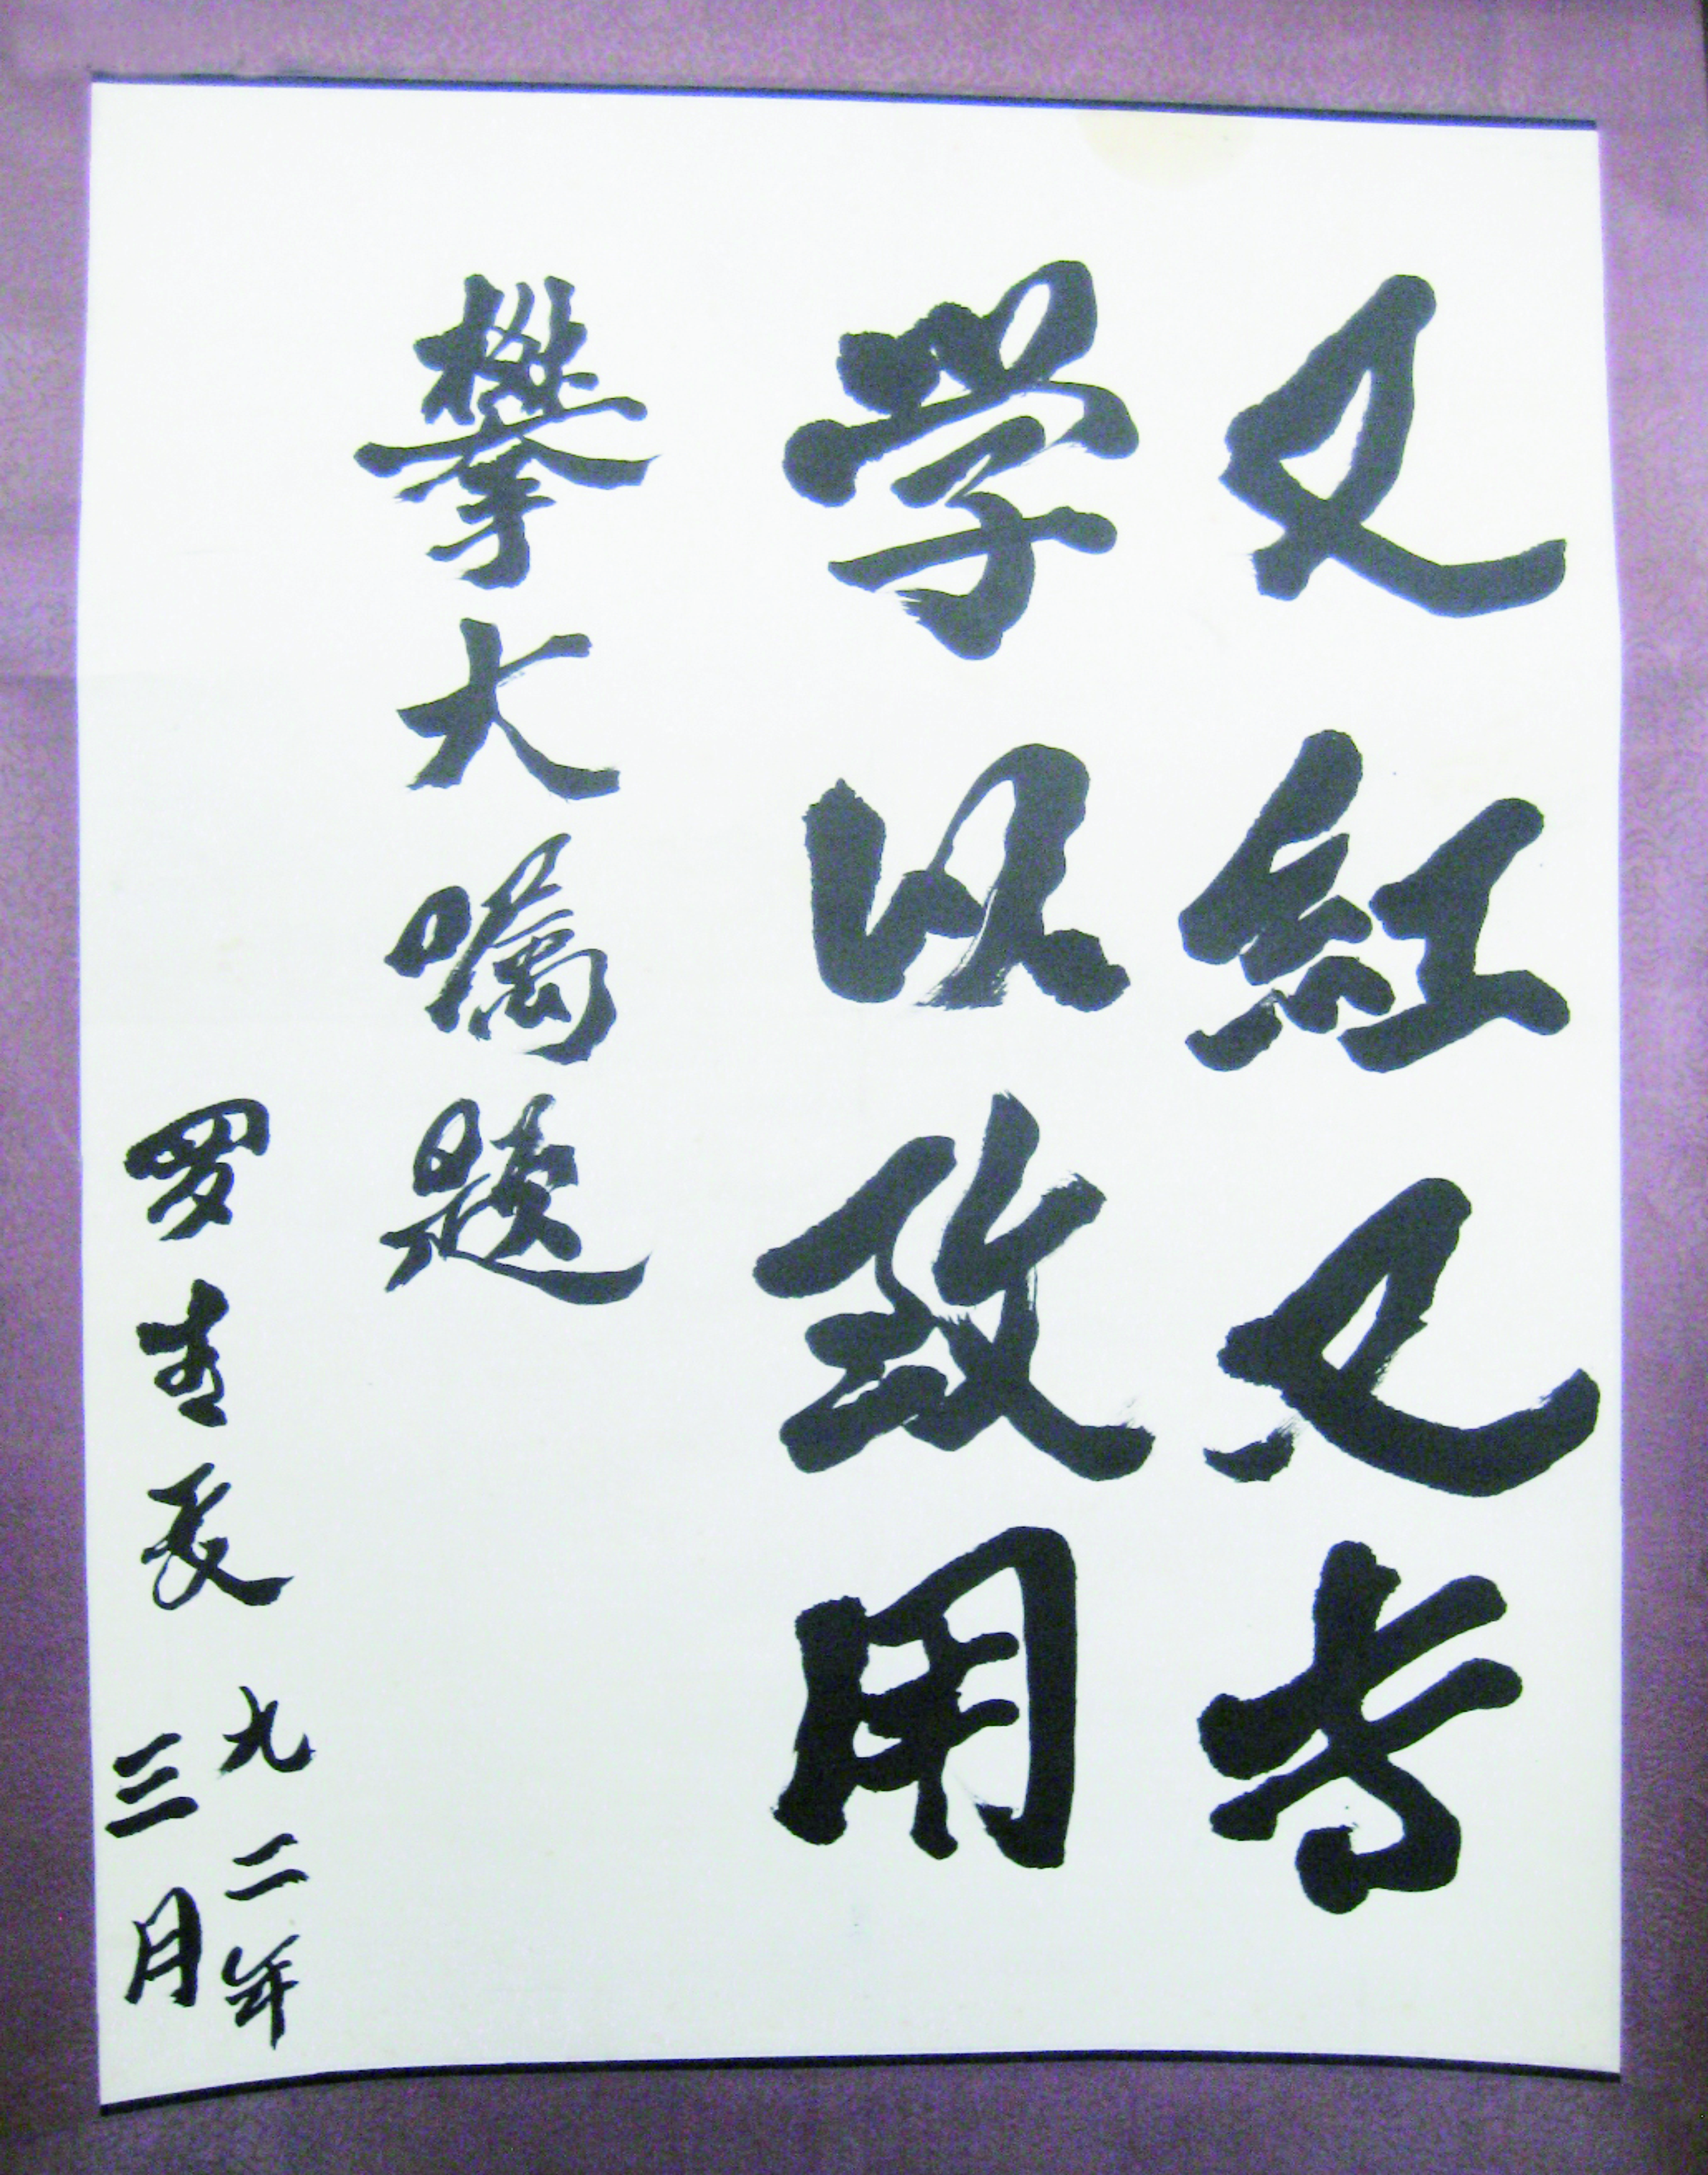 又紅又专
学以致用
攀大嘱题
罗青长
九二年
三月